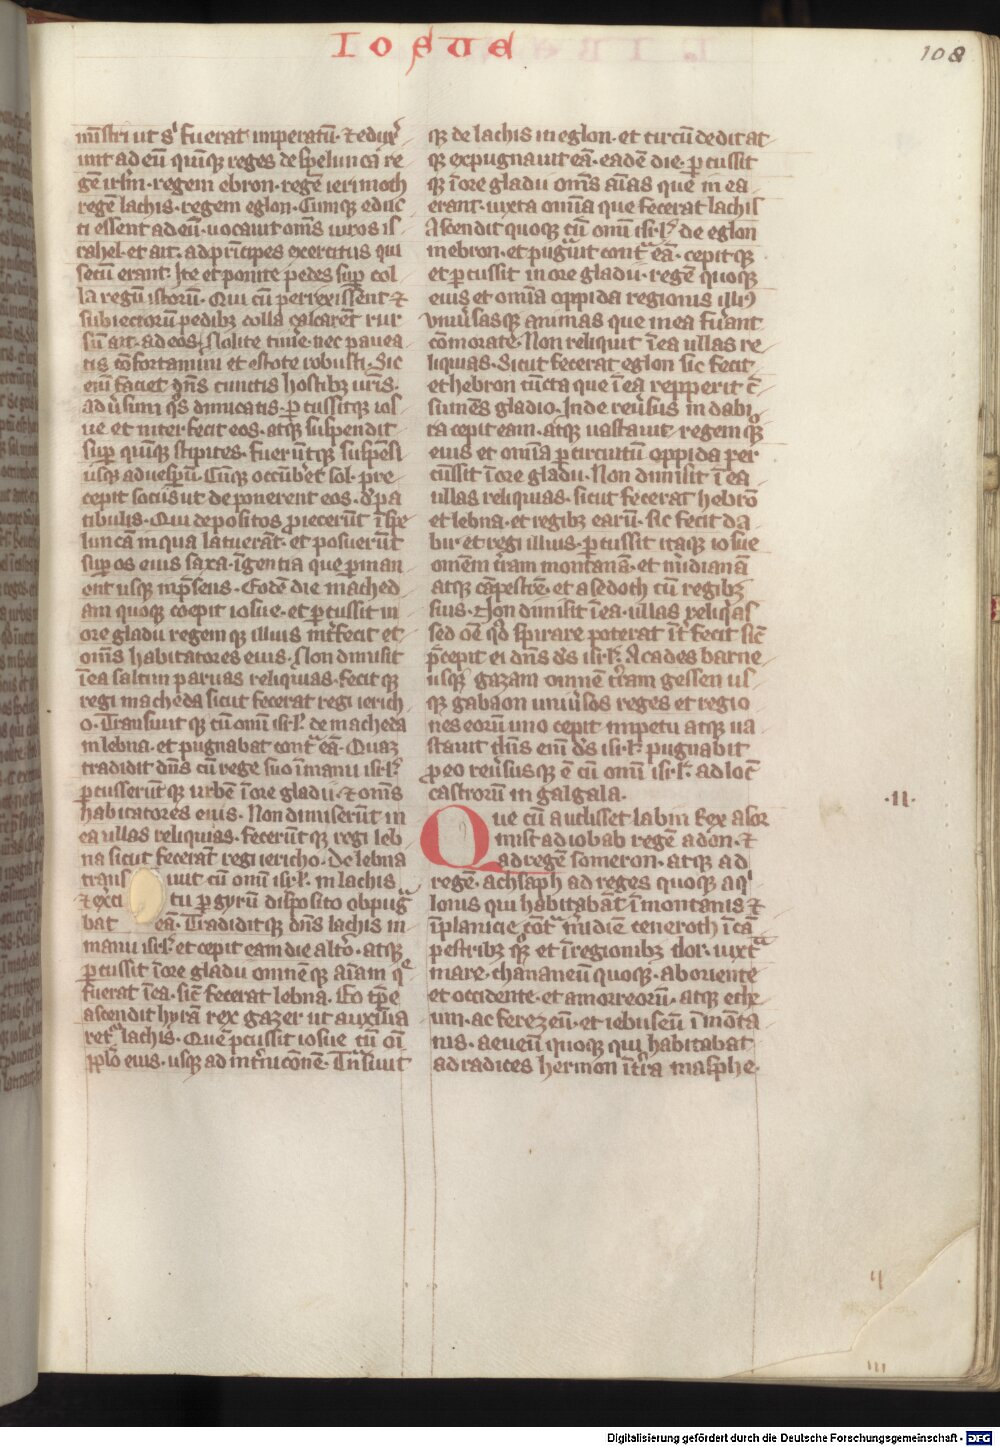 IOSUE
108
mīstri ut sᶦ fuerat imperatū· ⁊ eduxe᷒
īnt ad eū quīnqꝫ reges de spelunca re
gē irlm̄· regem ebron· regē ierimoth
regē lachis· regem eglon· Cumqꝫ educ
ti essent ad eū· uocauit om̄s uiros is
rahel· et ait· ad prīcipes exercitus qui
secū erant· Ite et ponite pedes suꝑ col
la regū istorū· Qui cū perrexissent ⁊
subiectorū pedibꝫ colla calcarēt rur
sū ait· ad eos· Nolite timẽ· nec pauea
tis cōfortamini et estote robusti· Sic
enī faciet dn̄s cunctis hostibꝫ ur̄is·
aduˀsum qͦs dimicatis· ꝑcussitqꝫ ios
ue· et interfecit eos· atqꝫ suspendit
suꝑ quīqꝫ stipites· fuerūtqꝫ suspensi
usqꝫ ad uesꝑū· Cūqꝫ occūbet̄ sol· pre
cepit sociis ut deponerent eos· d' pa
tibulis· Qui depositos ꝓiecerūt ī spe
luncā in qua latuerāt· et posuerūt
suꝑ os eius saxa· īgentia que ꝑman
ent usqꝫ inp̄sens· Eodē die mached
am quoqꝫ coepit iosue· et ꝑcussit in
ore gladii regemqꝫ illius int̄fecit et
om̄s habitatores eius· Non dimisit
ī ea saltim paruas reliquias· fecitqꝫ
regi macheda sicut fecerat regi ierich
o· Transiuitqꝫ cū omī isr̄l· de macheda
in lebna· et pugnabat contᵃ eā· Quaꝫ
tradidit dn̄s cū rege suo ī manu isr̄l·
ꝑcusserūtqꝫ urbē ī ore gladii· ⁊ om̄s
habitatores eius· Non dimiserūt in
ea ullas reliquias· fecerūtqꝫ regi leb
na sicut fecerat̄ regi iericho· de lebna
trans iuit cū omī isr̄l· in lachis
⁊ exʳci tu ꝑ gyrū disposito obpugᷓ
bat eā· Tradiditqꝫ dn̄s lachis in
manu isr̄l· et cepit eam die altˀo· atqꝫ
ꝑcussit ī ore gladii omnēqꝫ aīam qͤ
fuerat ī ea· sic̄ fecerat lebna· Eo tꝑe
ascendit hyrā rex gazer ut auxilia
retᷓ lachis· Quē ꝑcussit iosue cū oī
pplō eius· usqꝫ ad int̄nicionē· Trᷓsiuit
qꝫ de lachis in eglon· et circū dedit at
qꝫ expugnauit eā· eadē die· ꝑcussit
qꝫ ī ore gladii om̄s aīas que in ea
erant· iuxta om̄ia que fecerat lachis
Ascendit quoqꝫ cū omī isr̄l· de eglon
in ebron· et pugᷓuit contᷓ eā· cepitqꝫ
et ꝑcussit in ore gladii· regē quoqꝫ
eius et om̄ia oppida regionis illiꝰ
Vniuˀsasqꝫ animas que in ea fuˀant
cōmorate· Non reliquit ī ea ullas re
liquias· Sicut fecerat eglon sic fecit
et hebron cūcta que ī ea repperit cō
sumēs gladio· Inde reuˀsus in dabi
ra cepit eam· atqꝫ uastauit· regem qͦꝫ
eius et om̄ia ꝑ circuitū oppida ꝑer
cussit ī ore gladii· Non dimisit ī ea
ullas reliquias· sicut fecerat hebrō
et lebna· et regibꝫ earū· sic fecit da
bir et regi illius· ꝑcussit itaqꝫ iosue
omēm tˀram montanā· et mˀidianā
atqꝫ cāpestrē· et asedoth cū regibꝫ
suis· Non dimisit ī ea· ullas reliqᷓas
sed oē qd̄ spirare poterat īt̄fecit sic̄
p̄cepit ei dn̄s d̄s isr̄l· A cades barne
usqꝫ gazam omnē tˀram gessen us
qꝫ gabaon uniuˀsos reges et regio
nes eorū uno cepit impetu atqꝫ ua
stauit dn̄s enī d̄s isr̄l· pugnabit
ꝓ eo reuˀsusqꝫ ē cū omī isr̄l· ad loc̄
castrorū in galgala·
·11·
Que cū audisset Iabin Rex asor
misit ad iobab regē adon· ⁊
ad regē someron· atqꝫ ad
regē· achsaph ad reges quoqꝫ aqᶦ
lonis qui habitabāt ī montanis ⁊
ī planicie cōtᷓ mˀidiē ceneroth ī cā
pestribꝫ qͦꝫ et ī regionibꝫ dor· iuxtᷓ
mare· chananeū quoqꝫ· ab oriente
et occidente· et amorreorū· atqꝫ ethe
um· ac ferezeū· et iebuseū ī mōta
nis· aeueū quoqꝫ qui habitabat
ad radices hermon ī tˀra masphe·
Digitalisierung gefördert durch die Deutsche Forschungsgemeinschaft - DFG